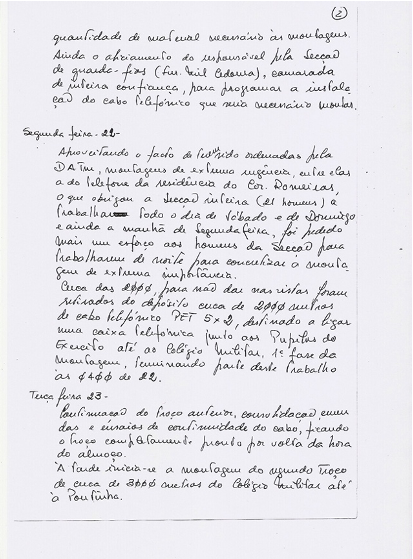 (2)
quantidade de material necessário às montagens.
Ainda o aliciamento do responsável pela Secção
de guarda-fios (Fur. Mil Cedoura), camarada
de inteira confiança, para programar a instala
ção do cabo telefónico que seria necessário montar.
Segunda feira - 22 -
Aproveitando o facto de terem sido ordenadas pela
DATm, montagens de extrema urgência, entre elas
a do telefone da residência do Cor. Romeiras,
o que obrigou a Secção inteira (21 homens) a
trabalhar todo o dia de Sábado e de Domingo
e ainda a manhã de Segunda feira, foi pedido
mais um esforço aos homens da Secção para
trabalharem de noite para concretizar a monta
gem de extrema importância.
Cerca das 2000, para não dar nas vistas foram
retirados do depósito cerca de 2000 metros
de cabo telefónico PET 5x2, destinado a ligar
uma caixa telefónica junto aos Pupilos do
Exercito até ao Colégio Militar, 1ª fase da
montagem, terminando parte deste trabalho
às 0400 de 22.
Terça feira 23 -
Continuação do troço anterior, consolidação, emen
das e ensaios de continuidade do cabo, ficando
o troço completamente pronto por volta da hora
do almoço.
À tarde inicia-se a montagem do segundo troço
de cerca de 3000 metros do Colégio Militar até
à Pontinha.